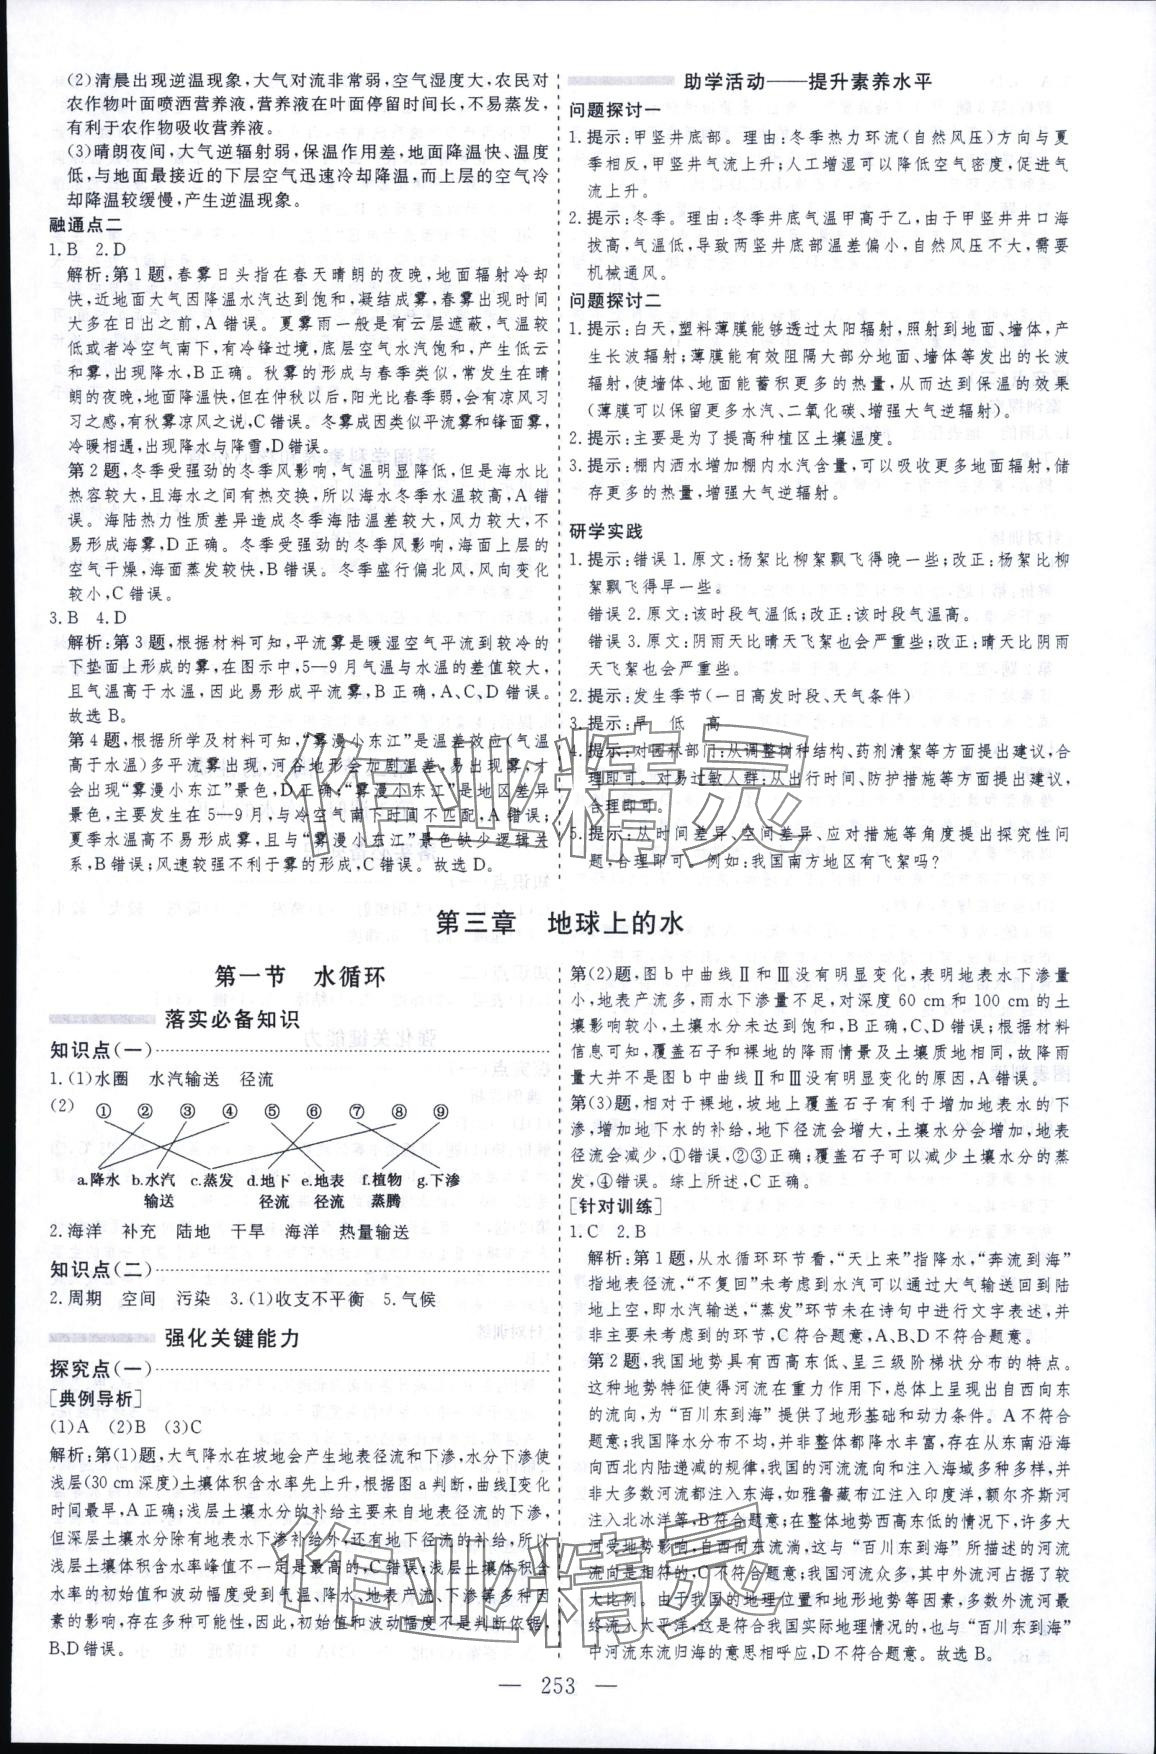 (2)清晨出现逆温现象,大气对流非常弱,空气湿度大,农民对
农作物叶面喷洒营养液,营养液在叶面停留时间长,不易蒸发,
有利于农作物吸收营养液。
(3)晴朗夜间,大气逆辐射弱,保温作用差,地面降温快、温度
低,与地面最接近的下层空气迅速冷却降温,而上层的空气冷
却降温较缓慢,产生逆温现象。
融通点二
1.B 2.D
解析:第1题,春雾日头指在春天晴朗的夜晚,地面辐射冷却
快,近地面大气因降温水汽达到饱和,凝结成雾,春雾出现时间
大多在日出之前,A错误。夏雾雨一般是有云层遮蔽,气温较
低或者冷空气南下,有冷锋过境,底层空气水汽饱和,产生低云
和雾,出现降水,B正确。秋雾的形成与春季类似,常发生在晴
朗的夜晚,地面降温快,但在仲秋以后,阳光比春季弱,会有凉风习
习之感,有秋雾凉风之说,C错误。冬雾成因类似平流雾和锋面雾,
冷暖相遇,出现降水与降雪,D错误。
第2题,冬季受强劲的冬季风影响,气温明显降低,但是海水比
热容较大,且海水之间有热交换,所以海水冬季水温较高,A错
误。海陆热力性质差异造成冬季海陆温差较大,风力较大,不
易形成海雾,D正确。冬季受强劲的冬季风影响,海面上层的
空气干燥,海面蒸发较快,B错误。冬季盛行偏北风,风向变化
较小,C错误。
3.B 4.D
解析:第3题,根据材料可知,平流雾是暖湿空气平流到较冷的
下垫面上形成的雾,在图示中,5—9月气温与水温的差值较大,
且气温高于水温,因此易形成平流雾,B正确,A、C、D错误。
故选B。
第4题,根据所学及材料可知,“雾漫小东江”是温差效应(气温
高于水温)多平流雾出现,河谷地形会加剧温差,易出现雾,才
会出现“雾漫小东江”景色,D正确;“雾漫小东江”是地区差异
景色,主要发生在5—9月,与冬季冷空气南下时间不匹配,A错误;
夏季水温高不易形成雾,且与“雾漫小东江”景色缺少逻辑关
系,B错误;风速较强不利于雾的形成,C错误。故选D。
助学活动——提升素养水平
问题探讨一
1.提示:甲竖井底部。理由:冬季热力环流(自然风压)方向与夏
季相反,甲竖井气流上升;人工增湿可以降低空气密度,促进气
流上升。
2.提示:冬季。理由:冬季井底气温甲高于乙,由于甲竖井井口海
拔高,气温低,导致两竖井底部温差偏小,自然风压不大,需要
机械通风。
问题探讨二
1.提示:白天,塑料薄膜能够透过太阳辐射,照射到地面、墙体,产
生长波辐射;薄膜能有效阻隔大部分地面、墙体等发出的长波
辐射,使墙体、地面能蓄积更多的热量,从而达到保温的效果
(薄膜可以保留更多水汽、二氧化碳,增强大气逆辐射)。
2.提示:主要是为了提高种植区土壤温度。
3.提示:棚内洒水增加棚内水汽含量,可以吸收更多地面辐射,储
存更多的热量,增强大气逆辐射。
研学实践
1.提示:错误1.原文:杨絮比柳絮飘飞得晚一些;改正:杨絮比柳
絮飘飞得早一些。
错误2.原文:该时段气温低;改正:该时段气温高。
错误3.原文:阴雨天比晴天飞絮也会严重些;改正:晴天比阴雨
天飞絮也会严重些。
2.提示:发生季节(一日高发时段、天气条件)
3.提示:早 低 高
4.提示:对园林部门:从调整树种结构、药剂清絮等方面提出建议,合
理即可。对易过敏人群:从出行时间、防护措施等方面提出建议,
合理即可。
5.提示:从时间差异、空间差异、应对措施等角度提出探究性问
题,合理即可。例如:我国南方地区有飞絮吗?
第三章 地球上的水
第一节 水循环
落实必备知识
知识点(一)
1.(1)水圈 水汽输送 径流
(2) ① ② ③ ④ ⑤ ⑥ ⑦ ⑧ ⑨
a.降水 b.水汽 c.蒸发 d.地下 e.地表 f.植物 g.下渗
输送 径流 径流 蒸腾
2.海洋 补充 陆地 干旱 海洋 热量输送
知识点(二)
2.周期 空间 污染 3.(1)收支不平衡 5.气候
强化关键能力
探究点(一)
[典例导析]
(1)A (2)B (3)C
解析:第(1)题,大气降水在坡地会产生地表径流和下渗,水分下渗使
浅层(30 cm深度)土壤体积含水率先上升,根据图a判断,曲线Ⅰ变化
时间最早,A正确;浅层土壤水分的补给主要来自地表径流的下渗,
但深层土壤水分除有地表水下渗补给外,还有地下径流的补给,所以
浅层土壤体积含水率峰值不一定是最高的,C错误;浅层土壤体积含
水率的初始值和波动幅度受到气温、降水、地表产流、下渗等多种因
素的影响,存在多种可能性,因此,初始值和波动幅度不是判断依据,
B、D错误。
第(2)题,图b中曲线Ⅱ和Ⅲ没有明显变化,表明地表水下渗量
小,地表产流多,雨水下渗量不足,对深度60 cm和100 cm的土
壤影响较小,土壤水分未达到饱和,B正确,C、D错误;根据材料
信息可知,覆盖石子和裸地的降雨情景及土壤质地一致,故降雨
量大并不是图b中曲线Ⅱ和Ⅲ没有明显变化的原因,A错误。
第(3)题,相对于裸地,坡地上覆盖石子有利于增加地表水的下
渗,增加地下水的补给,地下径流会增大,土壤水分会增加,地表
径流会减少,①错误,②③正确;覆盖石子可以减少土壤水分蒸
发,④错误。综上所述,C正确。
[针对训练]
1.C 2.B
解析:第1题,从水循环环节看,“天上来”指降水,“奔流到海”
指地表径流,“不复回”未考虑到水汽可以通过大气输送回到陆
地上空,即水汽输送,“蒸发”环节未在诗句中进行文字表述,并
非李白未考虑到的环节,C符合题意,A、B、D不符合题意。
第2题,我国地势具有西高东低、呈三级阶梯状分布的特点。
这种地势特征使得河流在重力作用下,总体上呈现自西向东
的流向,为“百川东到海”提供了地形基础和动力条件。A不符合
题意;我国降水分布不均,并非整体都降水丰富,存在从东南沿海
向西北内陆递减的规律,我国的河流流向和注入海域多种多样,并
非大多数河流都注入东海,如雅鲁藏布江注入印度洋,额尔齐斯河
注入北冰洋等,B符合题意;在整体地势西高东低的情况下,许多大
河受地势影响,自西向东流淌,这与“百川东到海”所描述的河流
流向是一致的,C不符合题意;我国河流众多,其中外流河占据了较
大比例。由于我国的地理位置和地形地势等因素,多数外流河最
终流入太平洋,这一情况符合我国实际地理情况的,也与“百川东到海”
中河流东流归海的意思相呼应,D不符合题意。故选B。
作业精灵
作业精灵
— 253 —